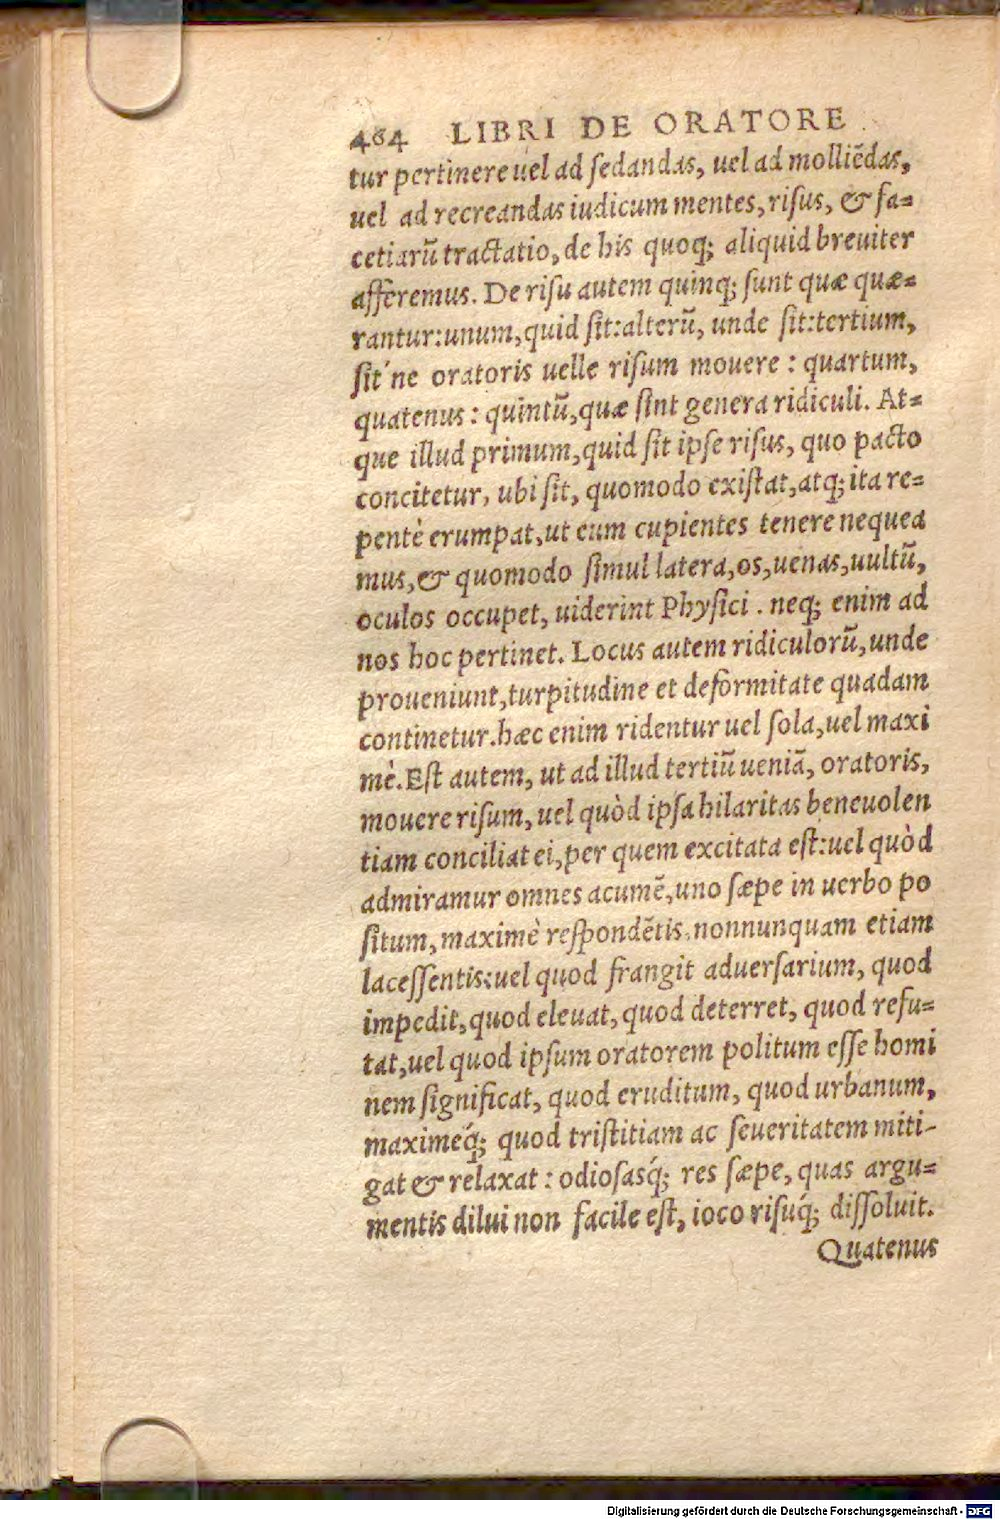 484 LIBRI DE ORATORE
tur pertinere uel ad ſedandas, uel ad molliēdas,
uel ad recreandas iudicum mentes, riſus, & fa=
cetiarũ tractatio, de his quoq; aliquid breuiter
afferemus. De riſu autem quinq; ſunt quæ quæ=
rantur: unum, quid ſit: alterũ, unde ſit: tertium,
ſit'ne oratoris uelle riſum mouere: quartum,
quatenus: quintũ, quæ ſint genera ridiculi. At=
que illud primum, quid ſit ipſe riſus, quo pacto
concitetur, ubi ſit, quomodo exiſtat, atq; ita re=
pentè erumpat, ut eum cupientes tenere nequea
mus, & quomodo ſimul latera, os, uenas, uultũ,
oculos occupet, uiderint Phyſici. neq; enim ad
nos hoc pertinet. Locus autem ridiculorũ, unde
proueniunt, turpitudine et deformitate quadam
continetur. hæc enim ridentur uel ſola, uel maxi
mè. Eſt autem, ut ad illud tertiũ ueniã, oratoris,
mouere riſum, uel quòd ipſa hilaritas beneuolen
tiam conciliat ei, per quem excitata eſt: uel quòd
admiramur omnes acumē, uno ſæpe in uerbo po
ſitum, maximè reſpondētis, nonnunquam etiam
laceſſentis: uel quod frangit aduerſarium, quod
impedit, quod eleuat, quod deterret, quod refu=
tat, uel quod ipſum oratorem politum eſſe homi
nem ſignificat, quod eruditum, quod urbanum,
maximeq́; quod triſtitiam ac ſeueritatem miti-
gat & relaxat: odioſasq́; res ſæpe, quas argu=
mentis dilui non facile eſt, ioco riſuq́; diſſoluit.
Quatenus
Digitalisierung gefördert durch die Deutsche Forschungsgemeinschaft - DFG